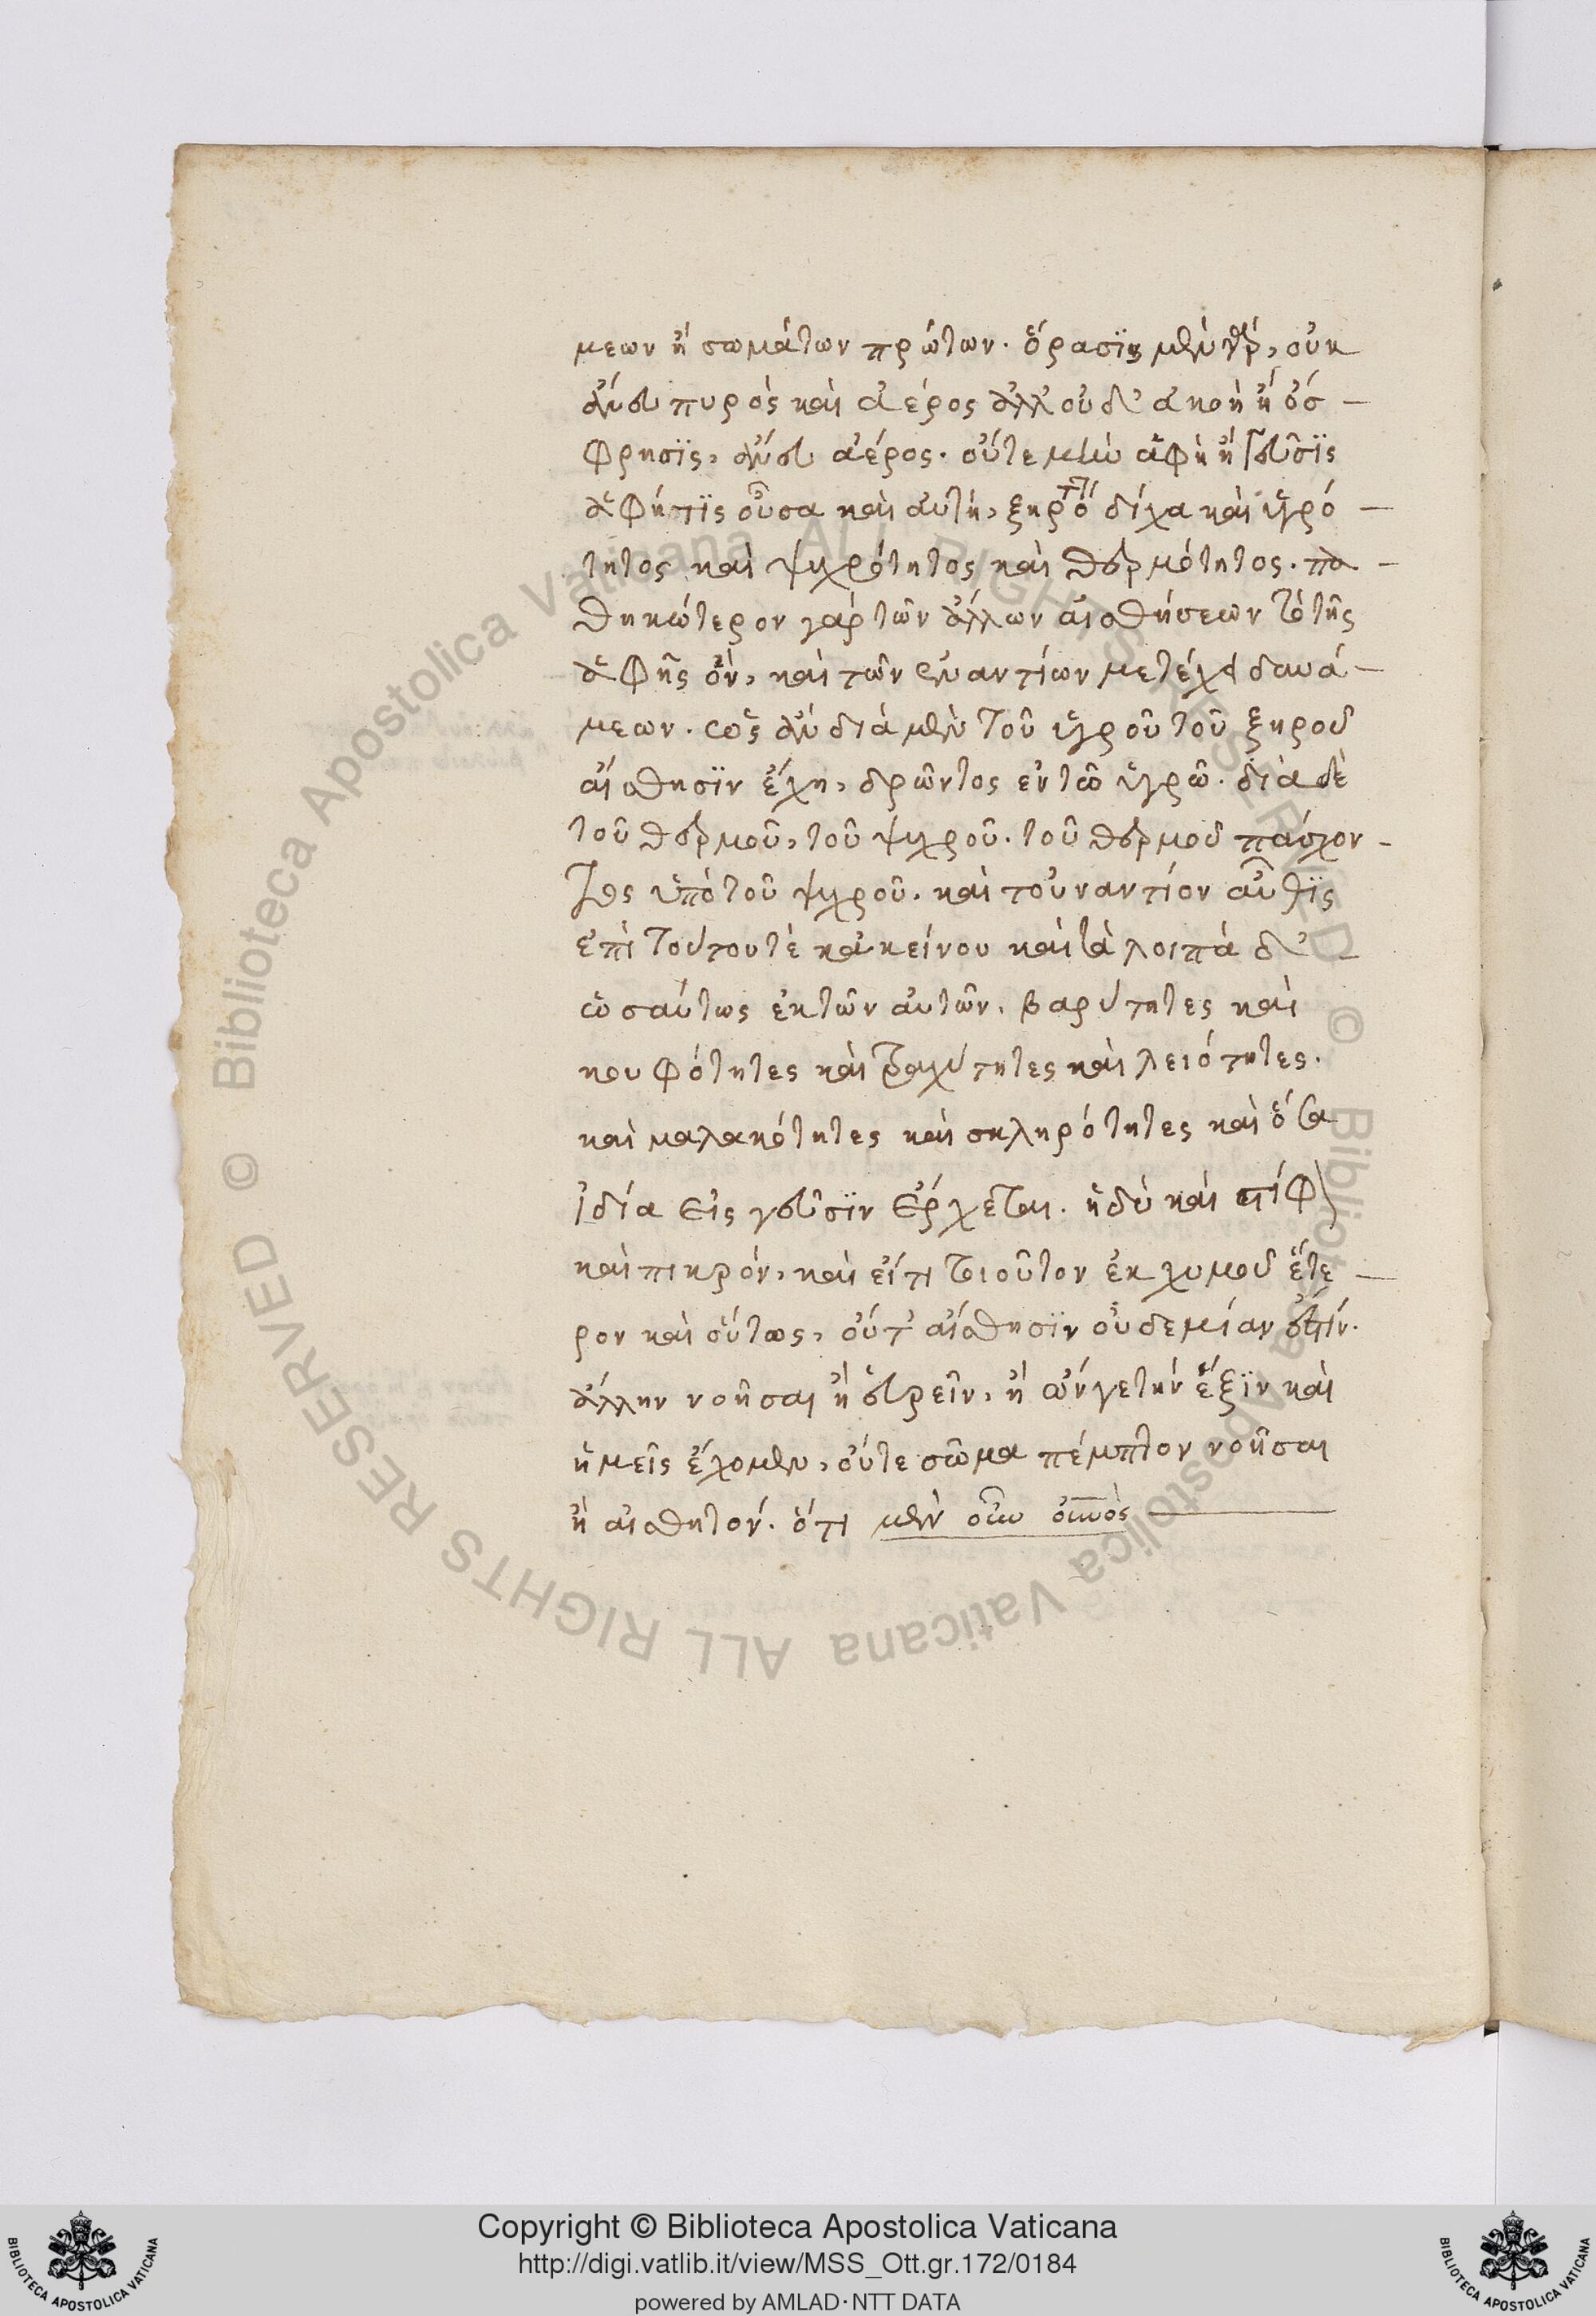 μεων ἢ σωμάτων πρώτων. ὅρασϊς μὲν γὰρ, οὐκ
ἄνευ πυρὸς καὶ ἀέρος ἀλλ' οὐδ' ἀκοὴ ἢ ὄσ –
φρησϊς, ἄνευ ἀέρος. οὔτε μὴν ἁφὴ ἢ γεῦσϊς
ἁφή τϊς οὖσα καὶ αὐτή, ξηρότητος δίχα καὶ ὑγρό –
τητος καὶ ψυχρότητος καὶ θερμότητος. πα –
θηκώτερον γὰρ τῶν ἄλλων αἰσθήσεων τὸ τῆς
ἁφῆς ὂν, καὶ τῶν ἐναντίων μετέχει δυνά –
μεων. ὡς ἂν διὰ μὲν τοῦ ὑγροῦ τοῦ ξηροῦ
αἴσθησϊν ἔχη, δρῶντος ἐν τῶ ὑγρῶ. διὰ δὲ
τοῦ θερμοῦ, τοῦ ψυχροῦ. τοῦ θερμοῦ πάσχον –
τος ὑπὸ τοῦ ψυχροῦ. καὶ τοὐναντίον αὖθϊς
ἐπὶ τούτου τὲ κἀκείνου καὶ τὰ λοιπὰ δ' –
ὡσαύτως ἐκ τῶν αὐτῶν. βαρύτητες καὶ
κουφότητες καὶ τραχύτητες καὶ λειότητες.
καὶ μαλακότητες καὶ σκληρότητες καὶ ὅσα
ἰδία εἰς γεῦσϊν ἔρχεται. ἡδὺ καὶ
καὶ πικρόν, καὶ εἴ τι τοιοῦτον ἐκ χυμοῦ ἕτε –
ρον καὶ οὕτως, οὔτ' αἴσθησϊν οὐδεμίαν ἐστὶν.
ἄλλην νοῆσαι ἢ εὑρεῖν, ἢ ὧν γε τὴν ἕξϊν καὶ
ἡμεῖς ἔχομεν, οὔτε σῶμα πέμπτον νοῆσαι
ἢ αἰσθητόν. ὅτι μὲν οὖν
Copyright © Biblioteca Apostolica Vaticana
http://digi.vatlib.it/view/MSS_Ott.gr.172/0184
powered by AMLAD·NTT DATA
BIBLIOTECA APOSTOLICA VATICANA
BIBLIOTECA APOSTOLICA VATICANA
© Biblioteca Apostolica Vaticana ALL RIGHTS RESERVED © Biblioteca Apostolica Vaticana ALL RIGHTS RESERVED